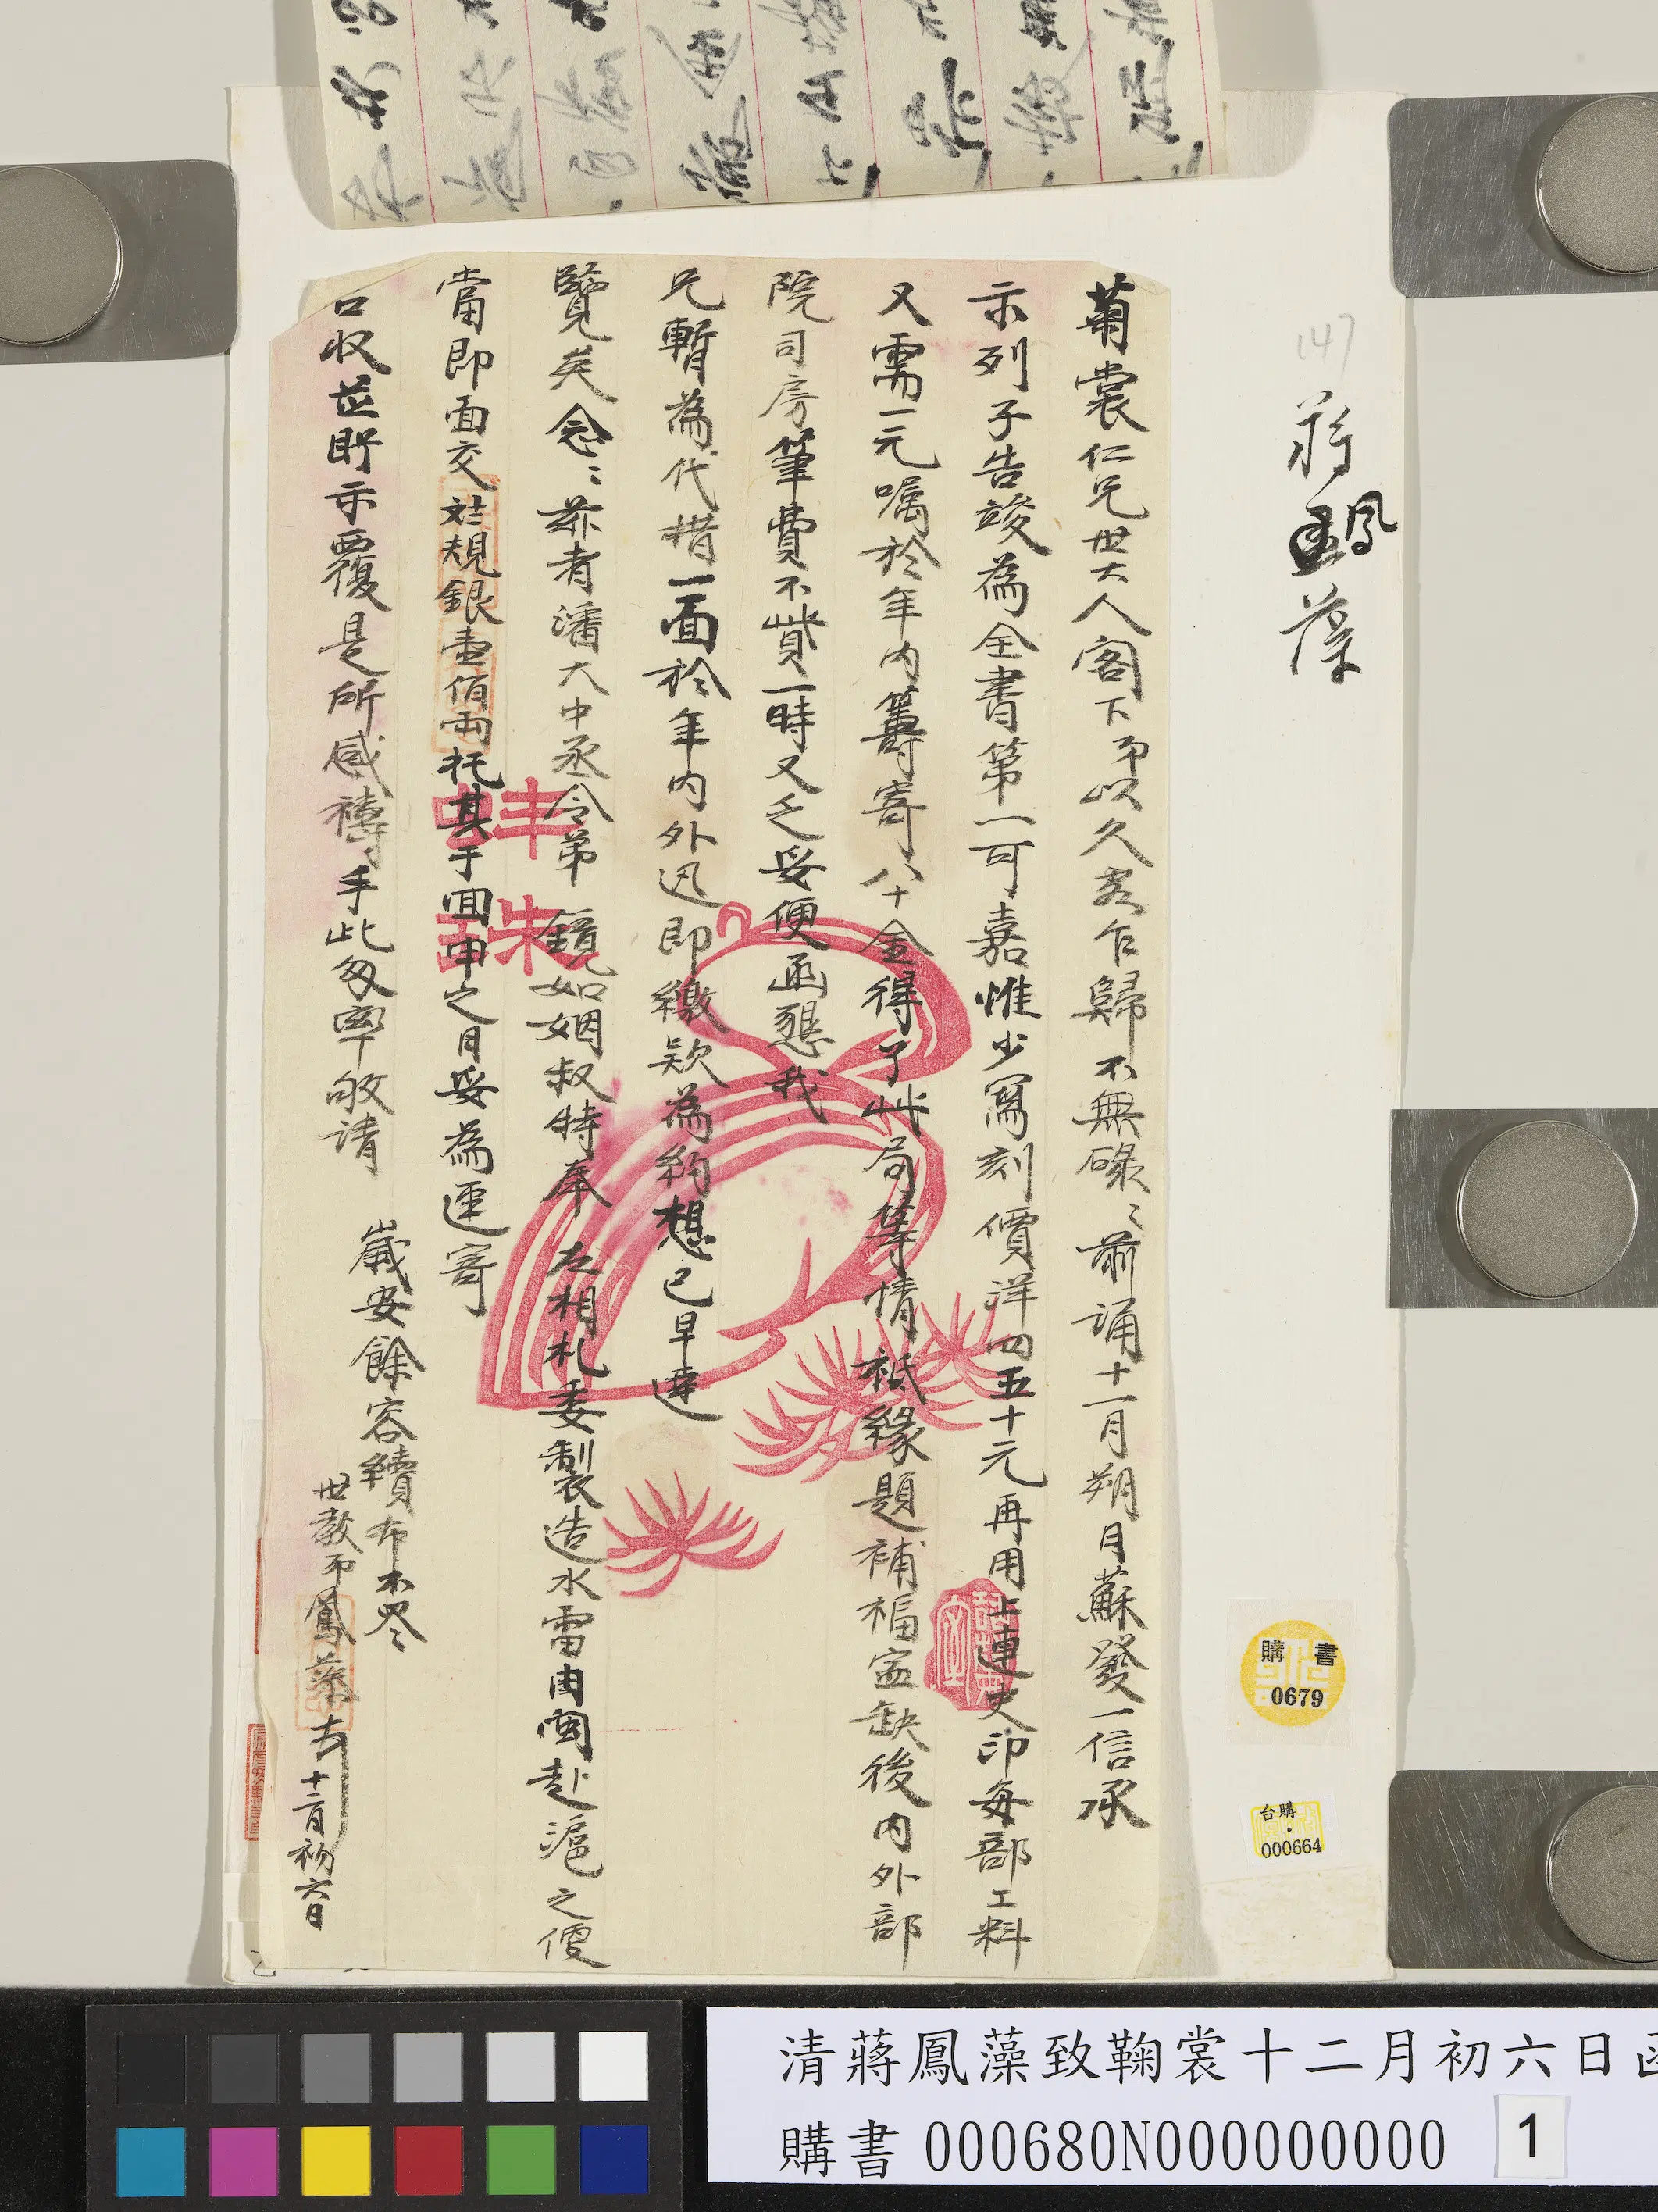 蔣鳳藻
147
菊裳仁兄世大人閣下弟以久客乍歸不無碌〻前誦十一月朔月蘇發一信承
示列子告竣為全書第一可嘉惟少寫刻價洋四五十元再用上連史印每部工料
又需一元囑於年內籌寄八十金得了此局等情祗緣題補福寧缺後內外部
院司房筆費不貲一時又乏妥便函懇我
兄暫為代措一面於年內外迅即繳款為約想已早達
覽矣念〻茲者潘大中丞令弟 鏡如姻叔特奉 左相札委製造水雷由閩赴滬之便
當即面交 規銀壹佰兩托其于回申之日妥為遞寄
台收並盼示覆是所感禱手此匆率敬請
歲安餘容續布不盡
世教弟鳳藻 十二月初六日
購書
0679
台購
000664
清蔣鳳藻致鞠裳十二月初六日函
購書 000680N000000000
1